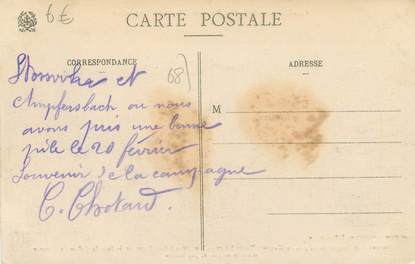 6€
CARTE POSTALE
CORRESPONDANCE
ADRESSE
68
M
et
Ampfersbach ou nous
avons pris une bonne
pile le 20 février
Souvenir de la campagne
C. Chotard.